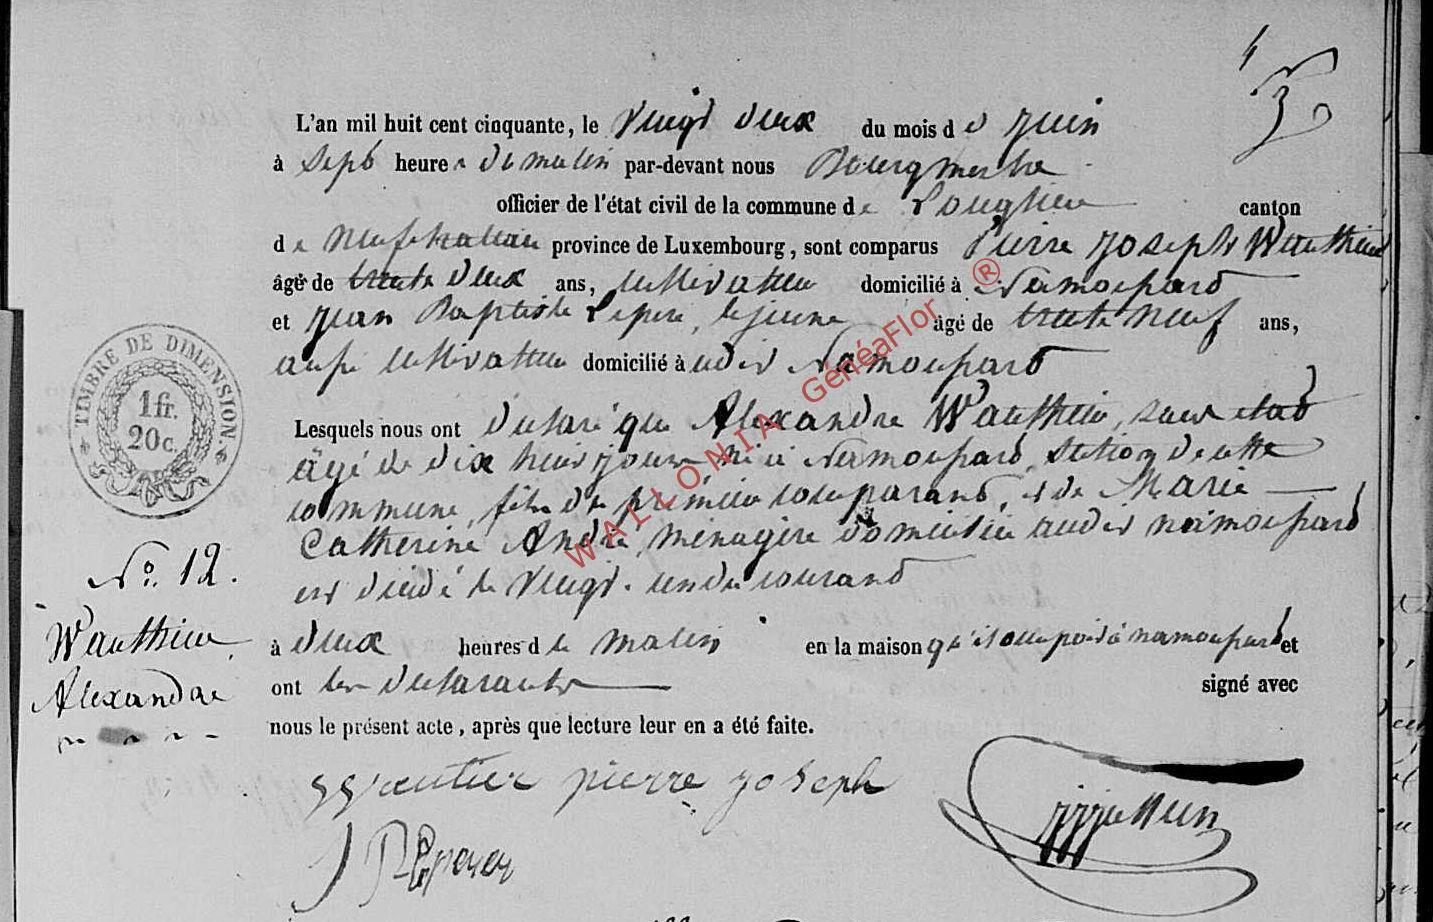 L'an mil huit cent cinquante, le vingt deux du mois de Juin
à sept heures du matin par-devant nous Bourgmestre
officier de l'état civil de la commune de Longlier canton
de Neufchateau province de Luxembourg, sont comparus Pierre Joseph Wauthier
âgé de trente deux ans, cultivateur domicilié à Namoussart
et Jean Baptiste Lepere, le jeune âgé de trente neuf ans,
aussi cultivateur domicilié à audit Namoussart
Lesquels nous ont déclaré que Alexandre Wauthier, sans etat
âgé de dix huit jours né à Namoussart section de cette
commune, fils du premier comparant, et de Marie
Catherine André, ménagère domiciliée audit namoussart
est décédé le vingt-un du courant
à deux heures du matin en la maison qu'il occupoit à namoussart et
ont les declarants signé avec
nous le présent acte, après que lecture leur en a été faite.
Wautier pierre Joseph
TIMBRE DE DIMENSION.
1 fr.
20 c.
No. 12.
Wauthier
Alexandre
WALLONIA GénéaFlor ®